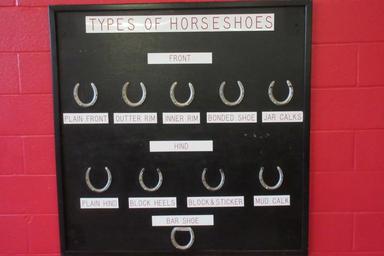 TYPES OF HORSESHOES
FRONT
PLAIN FRONT OUTTER RIM INNER RIM BONDED SHOE JAR CALKS
HIND
PLAIN HIND BLOCK HEELS BLOCK & STICKER MUD CALK
BAR SHOE